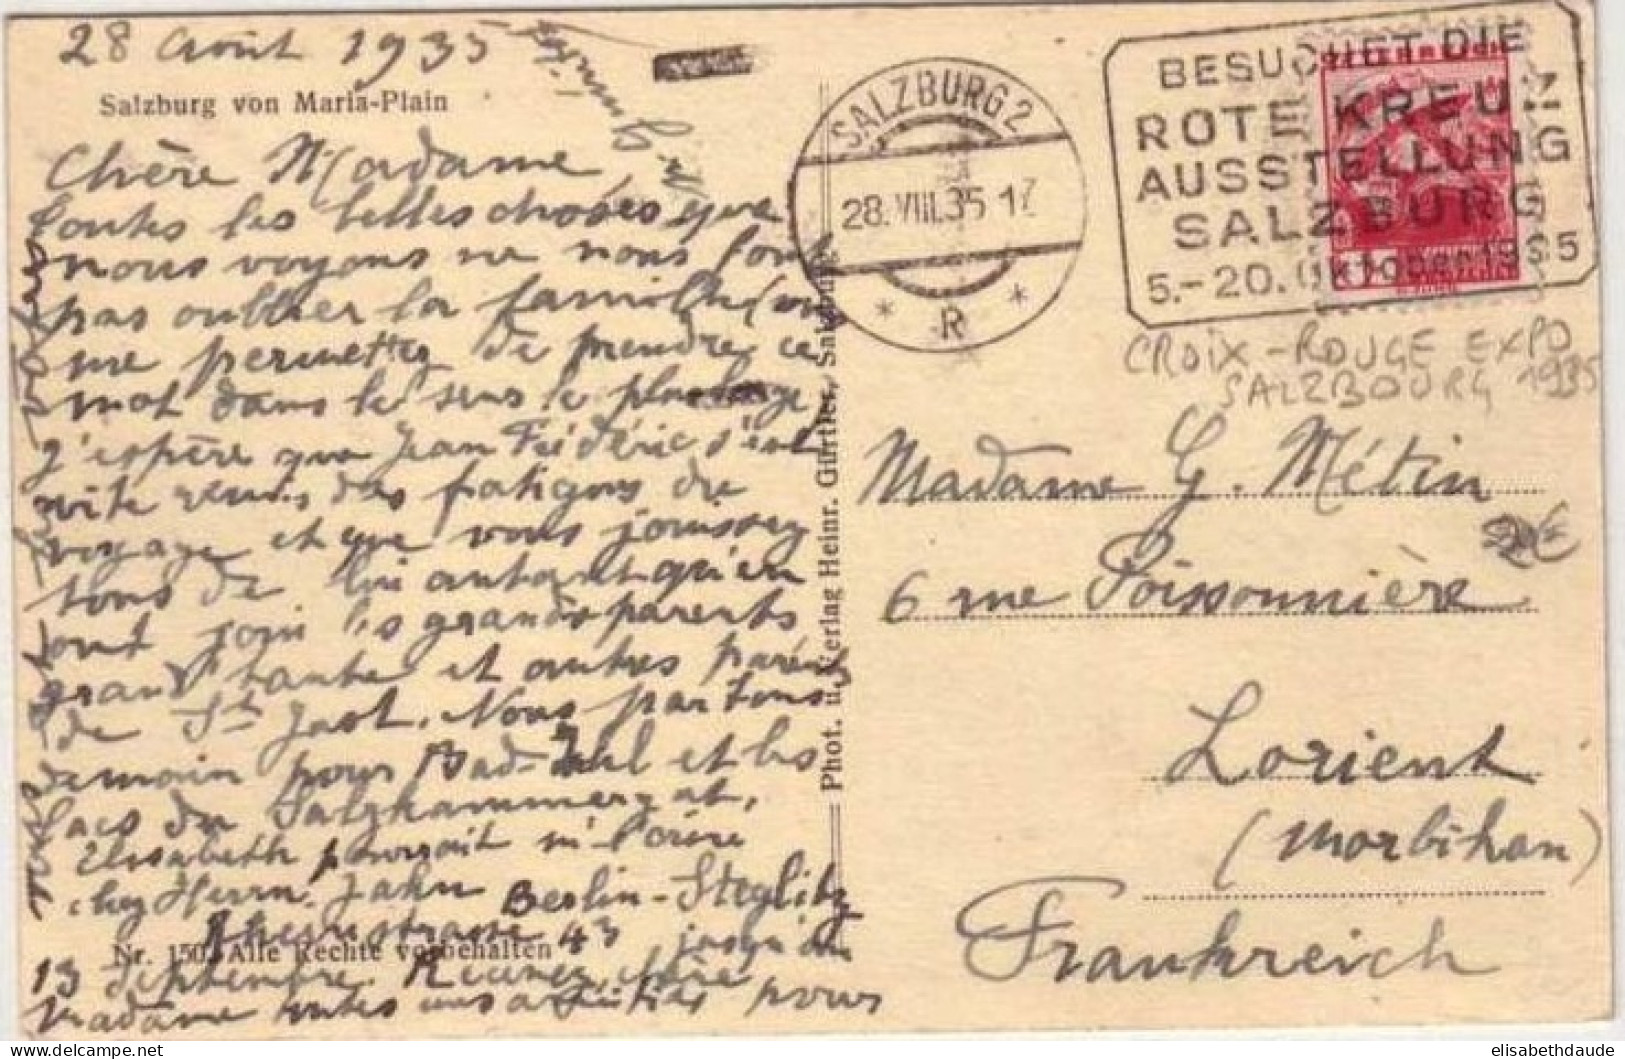 28 Août 1935
Salzburg von Maria-Plain
Chère Madame
toutes les belles choses que
nous voyons ne nous font
pas oublier la famille
me permettez de prendre ce
mot dans le sens le plus large
j'espère que Jean Frédéric s'est
vite remis des fatigues du
voyage et que vous jouissez
tous de lui autant qu'en
ont joui les grands parents
grand tante et autres parents
de St Just. Nous partons
demain pour Bad-Ischl et les
lacs du Salzkammergut.
Elisabeth pourrait m'écrire
chez Herrn. Jahn Berlin-Steglitz
43 jusqu'au
Nr. 150 Alle Rechte vorbehalten
13 Septembre. Recevez, chère
Madame toutes nos amitiés pour
Phot. u. Verlag Heinr. Gürtler, Salzburg
SALZBURG 2
28.VIII.35 17
* R *
BESUCHET DIE
ROTE KREUZ
AUSSTELLUNG
SALZBURG
5.-20. Oktober 1935
ÖSTERREICH
CROIX-ROUGE EXPO
SALZBOURG 1935
Madame G. Métin
20€
6 rue Poissonnière
Lorient
(Morbihan)
Frankreich
elisabethdaude